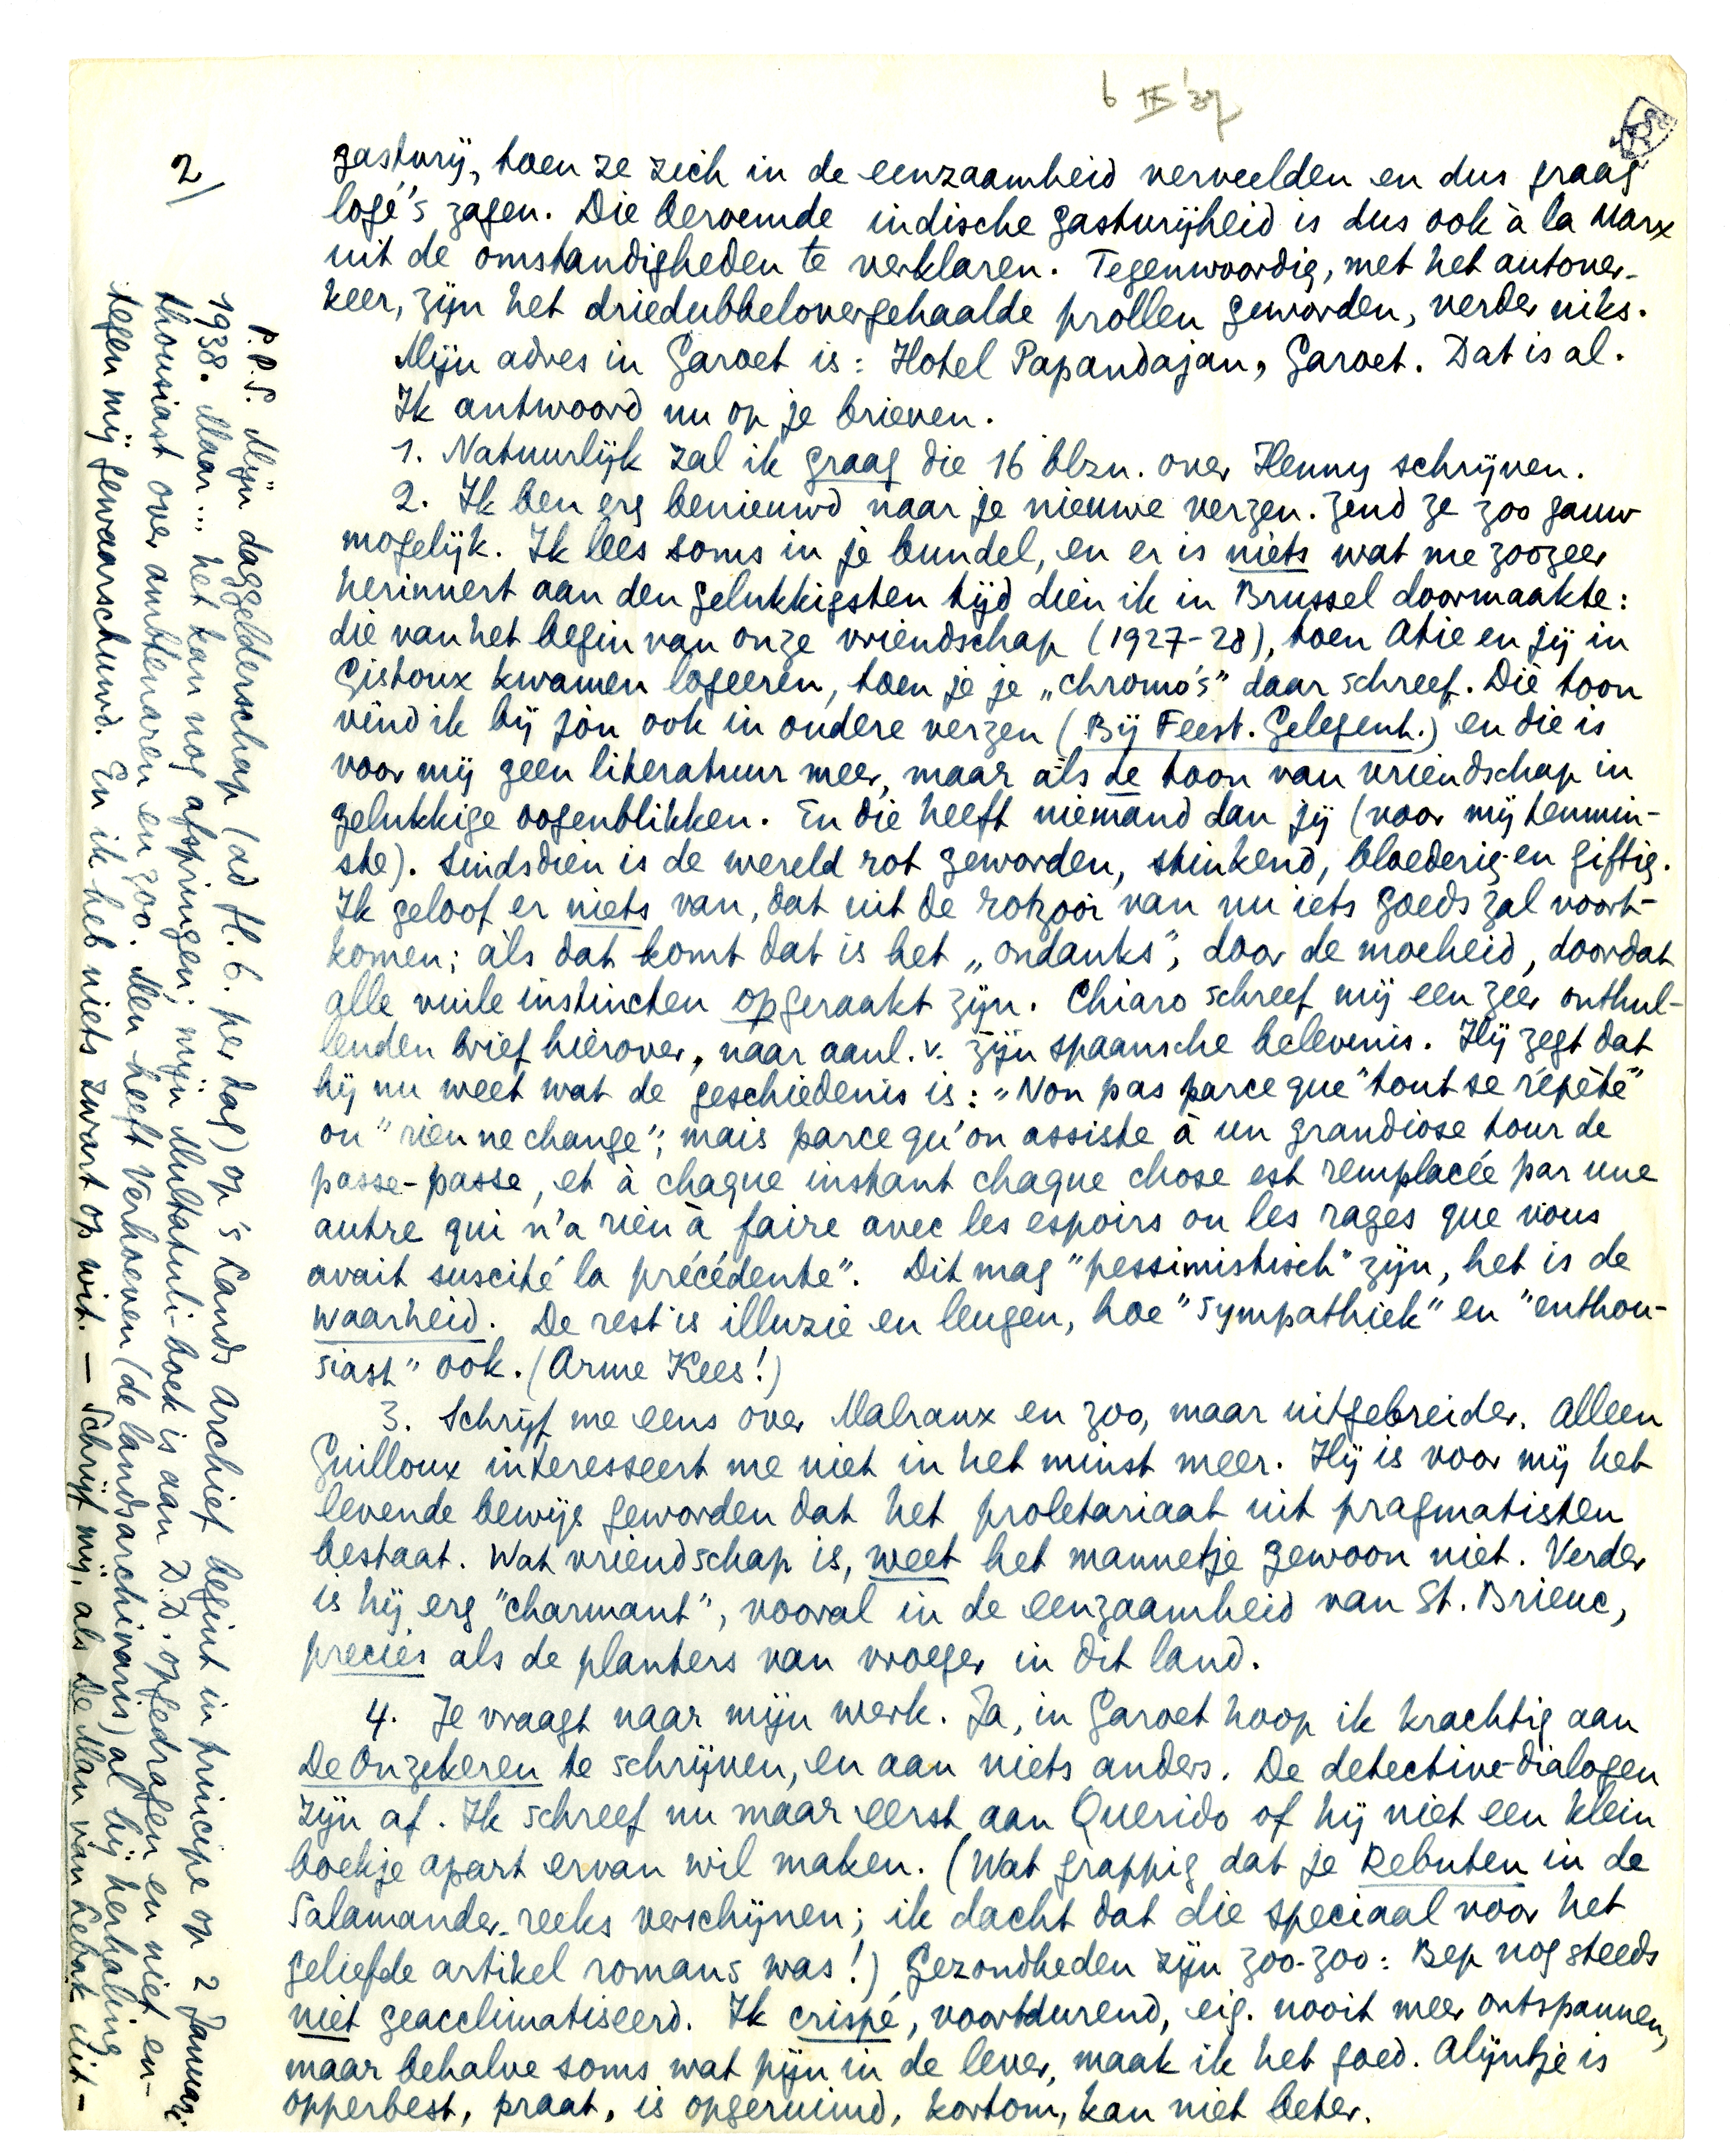 6 IX '37
2/
gastvrij, toen ze zich in de eenzaamheid verveelden en dus graag
logé's zagen. Die beroemde indische gastvrijheid is dus ook à la Marx
uit de omstandigheden te verklaren. Tegenwoordig, met het autover-
keer, zijn het driedubbelovergehaalde prollen geworden, verder niks.
Mijn adres in Garoet is: Hotel Papandajan, Garoet. Dat is al.
Ik antwoord nu op je brieven.
1. Natuurlijk zal ik graag die 16 blzn. over Henny schrijven.
2. Ik ben erg benieuwd naar je nieuwe verzen. Zend ze zoo gauw
mogelijk. Ik lees soms in je bundel, en er is niets wat me zoozeer
herinnert aan den gelukkigsten tijd dien ik in Brussel doormaakte:
die van het begin van onze vriendschap (1927-28), toen Atie en jij in
Gistoux kwamen logeeren, toen je je „chromo's" daar schreef. Die toon
vind ik bij jou ook in oudere verzen (Bij Feest. Gelegenh.) en die is
voor mij geen literatuur meer, maar àls de toon van vriendschap in
gelukkige oogenblikken. En die heeft niemand dan jij (voor mij tenmin-
ste). Sindsdien is de wereld rot geworden, stinkend, bloederig en giftig.
Ik geloof er niets van, dat uit de rotzooi van nu iets goeds zal voort-
komen; àls dat komt dat is het „ondanks", door de moeheid, doordat
alle vuile instincten opgeraakt zijn. Chiaro schreef mij een zeer onthul-
lenden brief hierover, naar aanl. v. zijn spaansche belevenis. Hij zegt dat
hij nu weet wat de geschiedenis is: "Non pas parce que "tout se répète"
ou "rien ne change"; mais parce qu'on assiste à un grandiose tour de
passe-passe, et à chaque instant chaque chose est remplacée par une
autre qui n'a rien à faire avec les espoirs ou les rages que vous
avait suscité la précédente". Dit mag "pessimistisch" zijn, het is de
waarheid. De rest is illuzie en leugen, hoe "sympathiek" en "enthou-
siast" ook. (Arme Kees!)
3. Schrijf me eens over Malraux en zoo, maar uitgebreider. Alleen
Guilloux interesseert me niet in het minst meer. Hij is voor mij het
levende bewijs geworden dat het proletariaat uit pragmatisten
bestaat. Wat vriendschap is, weet het mannetje gewoon niet. Verder
is hij erg "charmant", vooral in de eenzaamheid van St. Brieuc,
precies als de planters van vroeger in dit land.
4. Je vraagt naar mijn werk. Ja, in Garoet hoop ik krachtig aan
De Onzekeren te schrijven, en aan niets anders. De detective-dialogen
zijn af. Ik schreef nu maar eerst aan Querido of hij niet een klein
boekje apart ervan wil maken. (Wat grappig dat je Rebuten in de
Salamander-reeks verschijnen; ik dacht dat die speciaal voor het
geliefde artikel romans was!) Gezondheden zijn zoo-zoo: Bep nog steeds
niet geacclimatiseerd. Ik crispé, voortdurend, eig. nooit meer ontspannen,
maar behalve soms wat pijn in de lever, maak ik het goed. Alijntje is
opperbest, praat, is opgeruimd, kortom, kan niet beter.
P.P.S. Mijn daggelderschap (ad fl. 6. per dag) op 's Lands Archief begint in principe op 2 Januari
1938. Maar... het kan nog afspringen; mijn Multatuli-boek is aan D.D. opgedragen en niet en-
thousiast over ambtenaren en zoo. Men heeft Verhoeven (de landsarchivaris) al bij herhaling
tegen mij gewaarschuwd. En ik heb niets zwart op wit. — Schrijf mij, als De Man van Lebak uit-